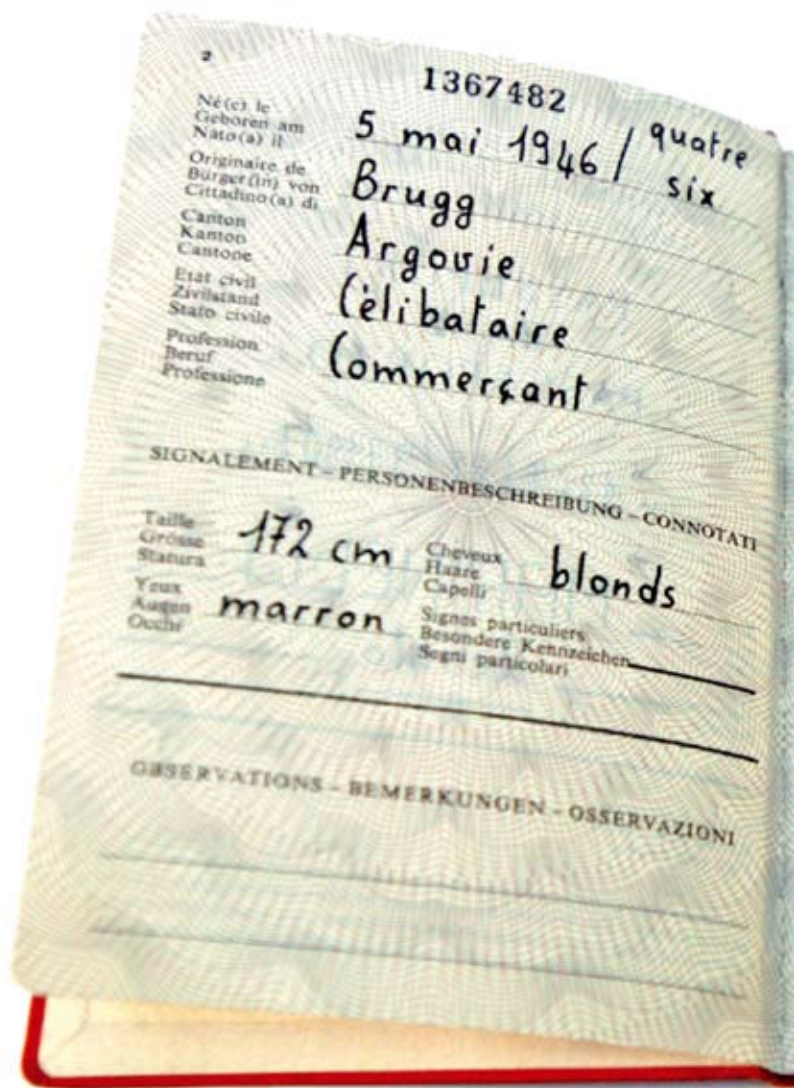 2
1367482
Né(e) le
Geboren am
Nato(a) il
5 mai 1946 / quatre
six
Originaire de
Bürger(in) von
Cittadino(a) di
Brugg
Canton
Kanton
Cantone
Argovie
Etat civil
Zivilstand
Stato civile
Célibataire
Profession
Beruf
Professione
Commerçant
SIGNALEMENT – PERSONENBESCHREIBUNG – CONNOTATI
Taille
Grösse
Statura
172 cm
Cheveux
Haare
Capelli
blonds
Yeux
Augen
Occhi
marron
Signes particuliers
Besondere Kennzeichen
Segni particolari
OBSERVATIONS – BEMERKUNGEN – OSSERVAZIONI